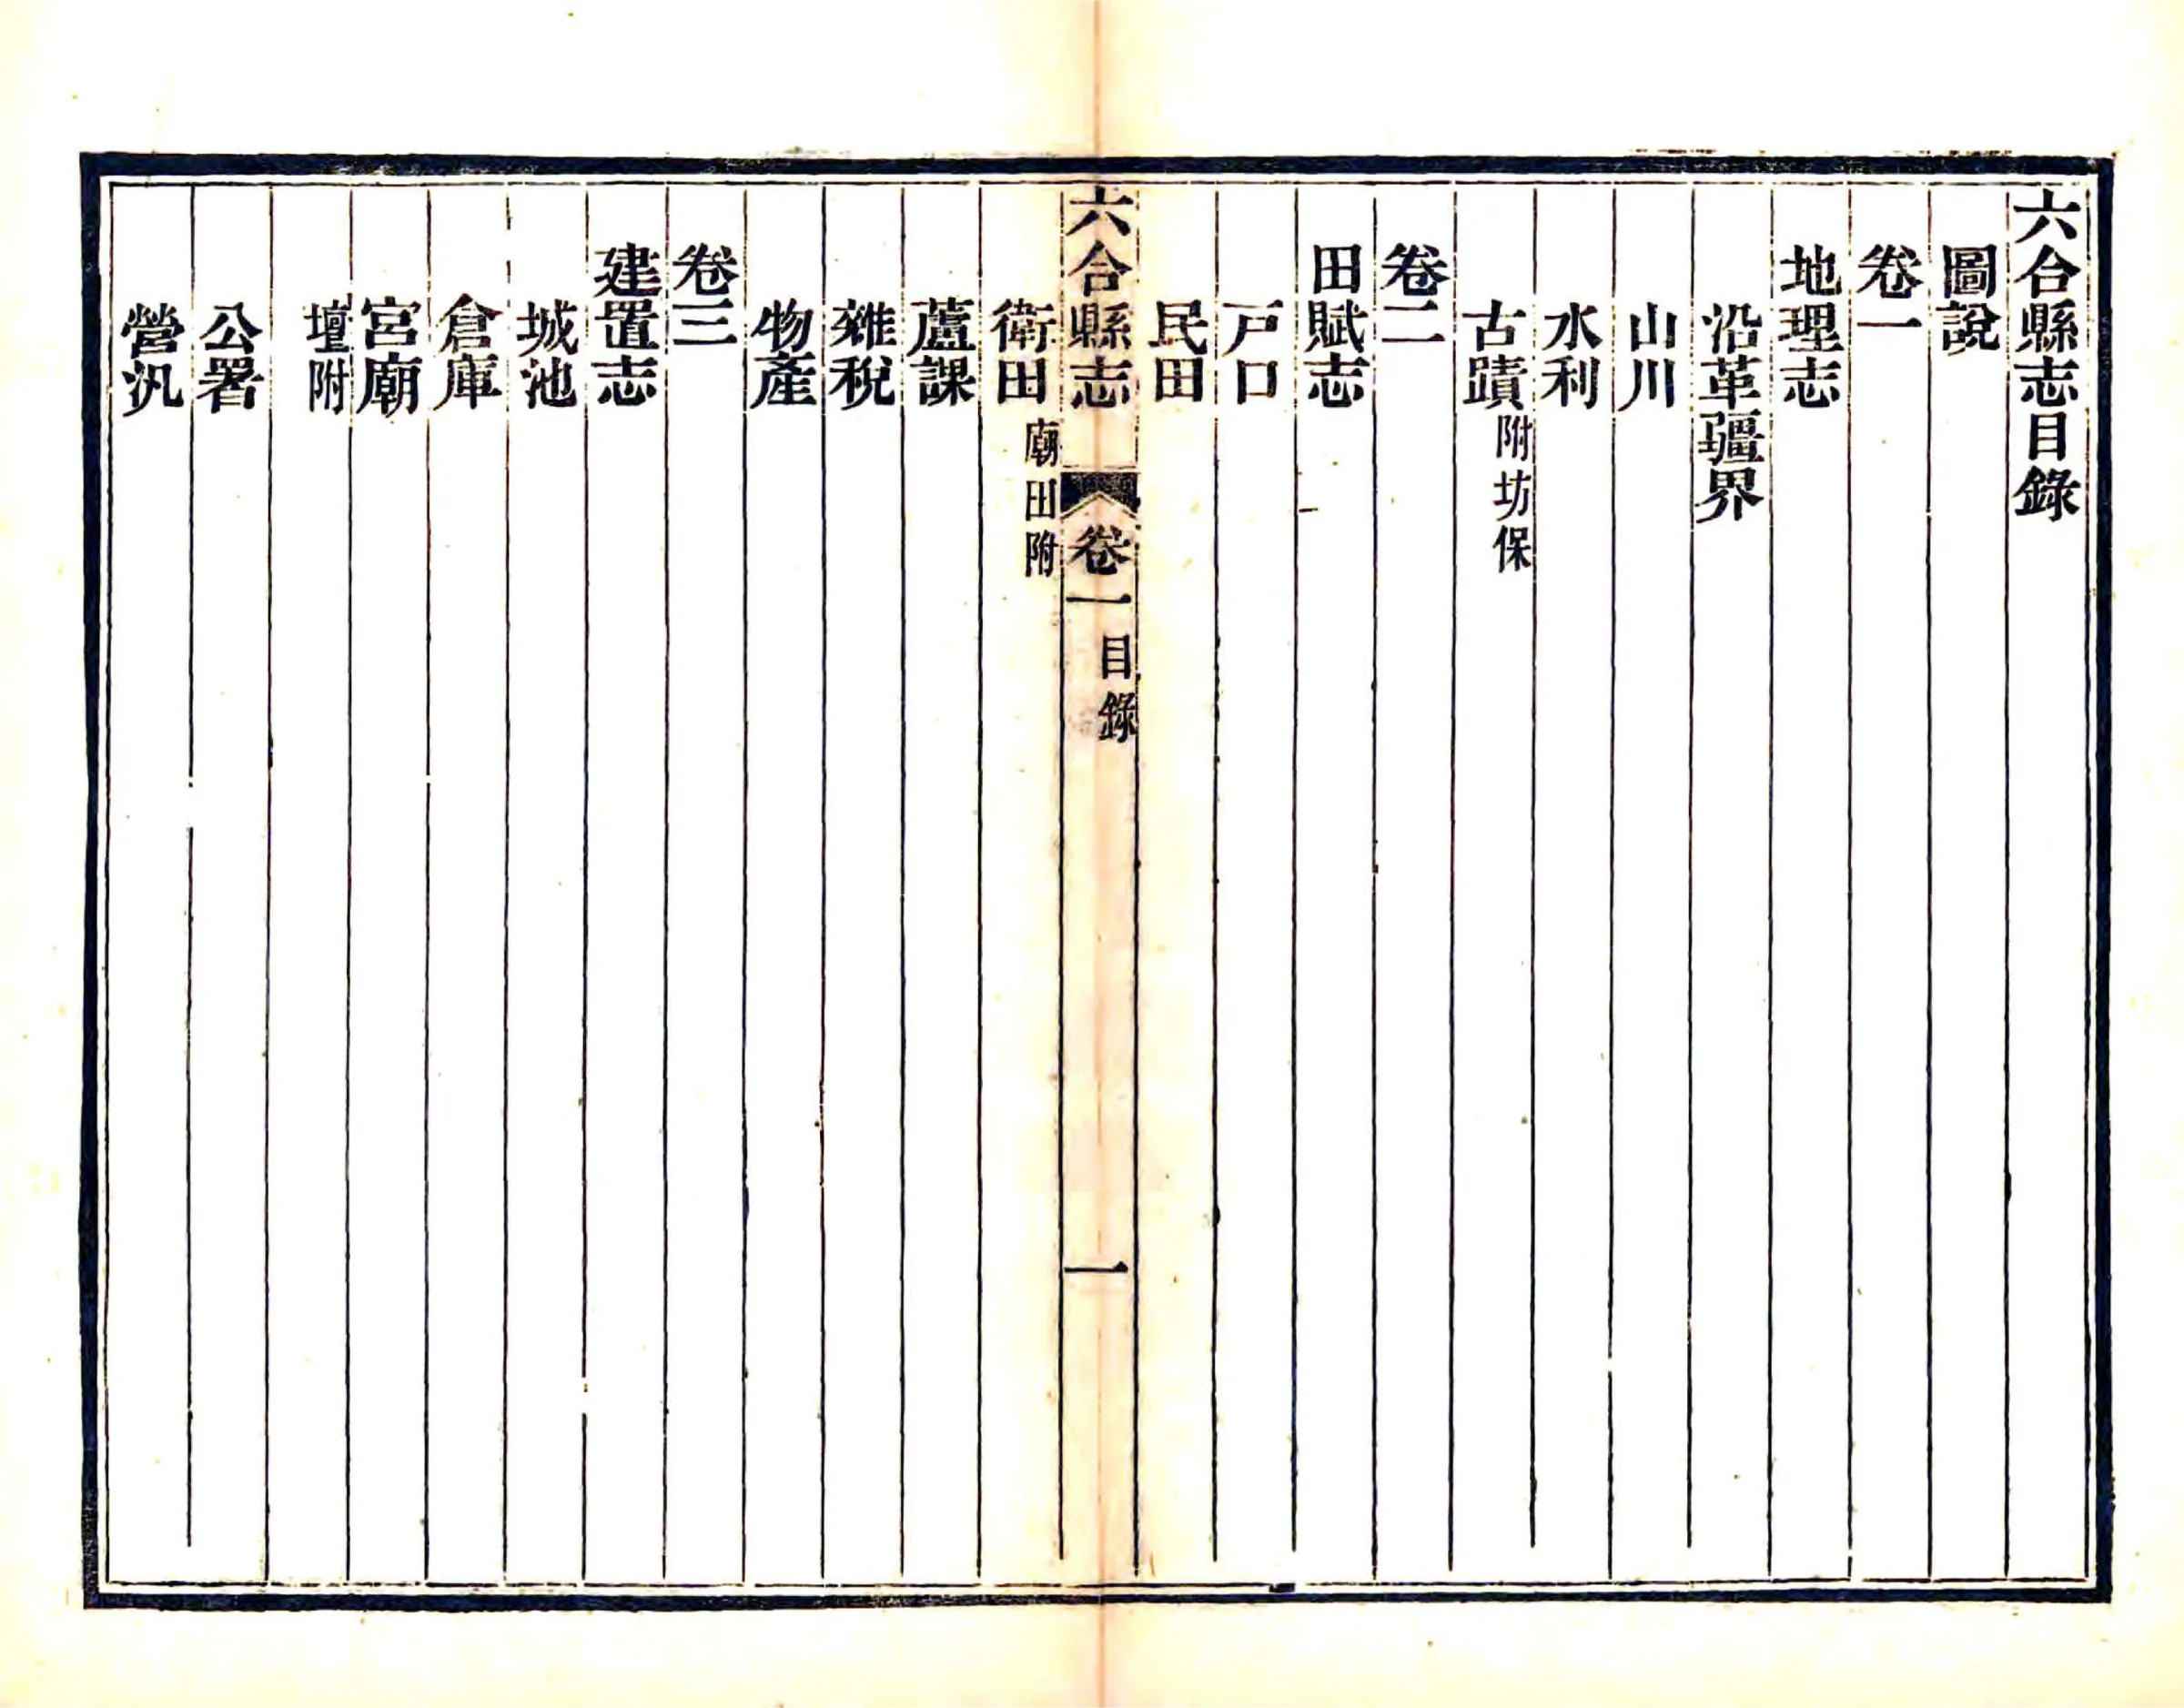 六合縣志目錄
圖說
卷一
地理志
沿革疆界
山川
水利
古蹟附坊保
卷二
田賦志
戸口
民田
六合縣志 卷一 目錄 一
衛田廟田附
蘆課
雜稅
物產
卷三
建置志
城池
倉庫
宮廟
壇附
公署
營汛